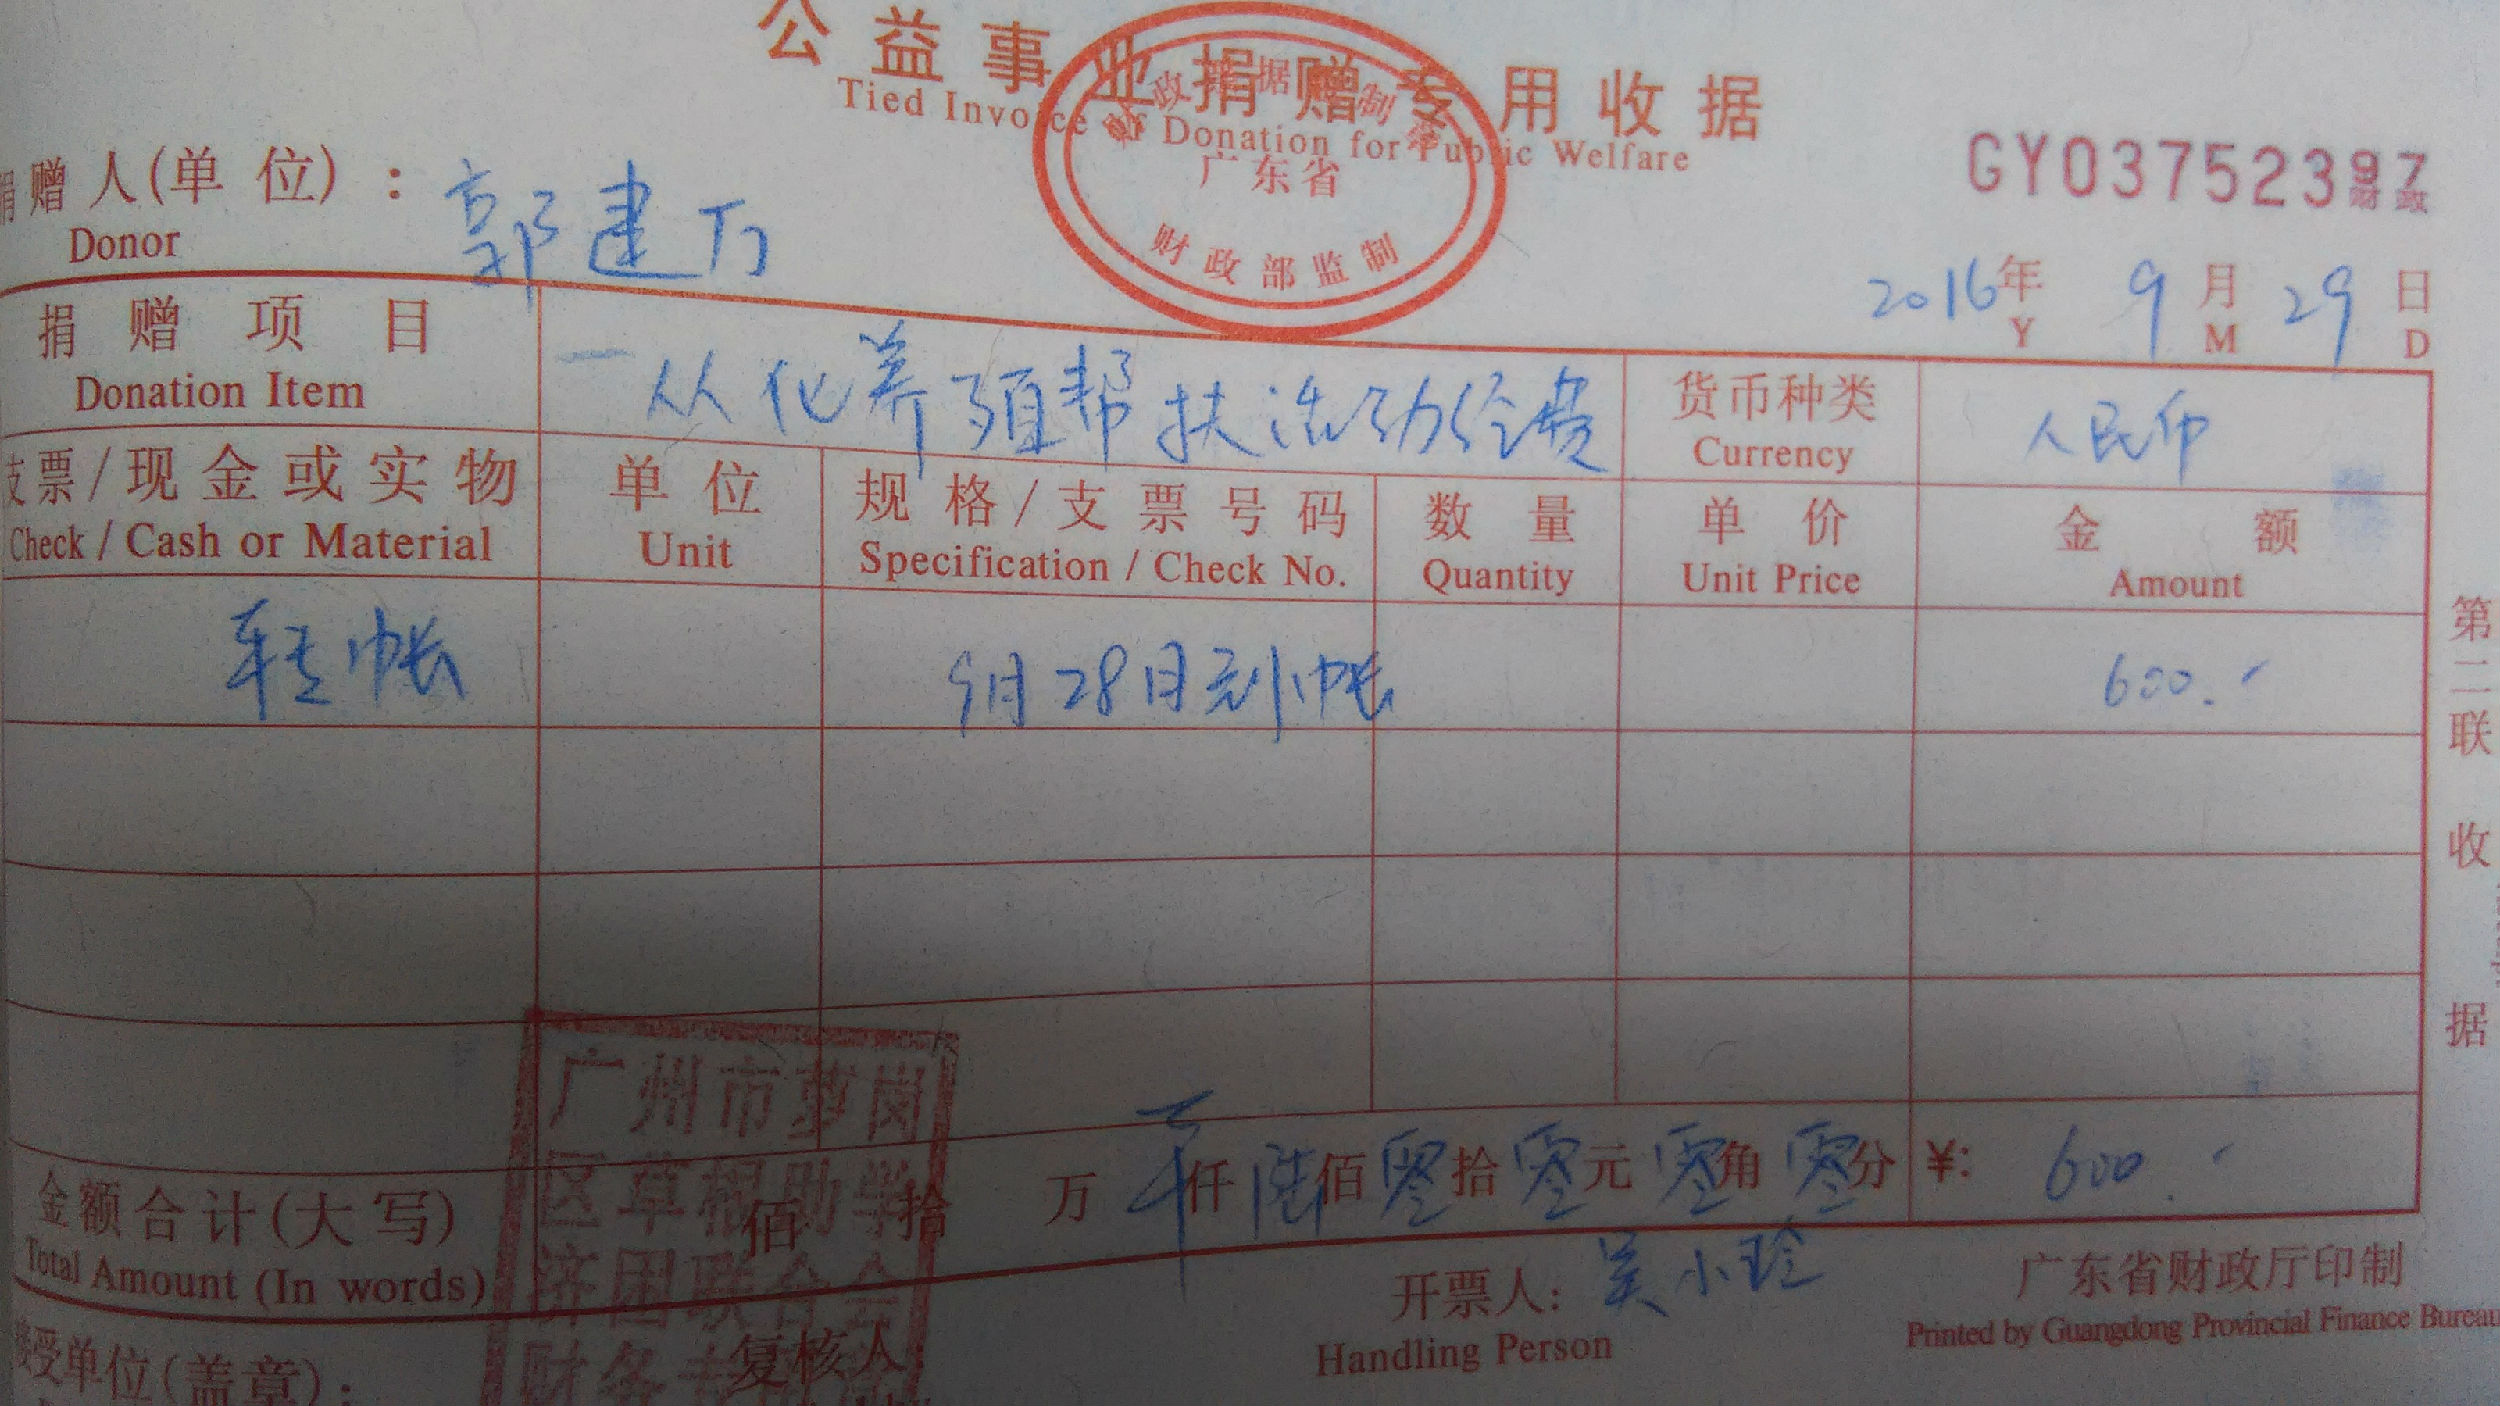 公益事业捐赠专用收据
Tied Invoice of Donation for Public Welfare
广东省
财政部监制
GY03752397
财政
捐赠人(单位): 郭建万
Donor
2016年 9月 29日
Y M D
捐赠项目 从化养殖帮扶活动经费 货币种类 人民币
Donation Item Currency
支票/现金或实物 单位 规格/支票号码 数量 单价 金额
Check / Cash or Material Unit Specification / Check No. Quantity Unit Price Amount
转帐 9月28日到帐 600.-
第二联 收据
广州市萝岗
区草根助学
济困联合会
财务专
金额合计(大写) 佰 拾 万 仟 陆佰 零拾 零元 零角 零分 ¥: 600.-
Total Amount (In words)
开票人: 吴小玲 广东省财政厅印制
Handling Person Printed by Guangdong Provincial Finance Bureau
接受单位(盖章): 复核人